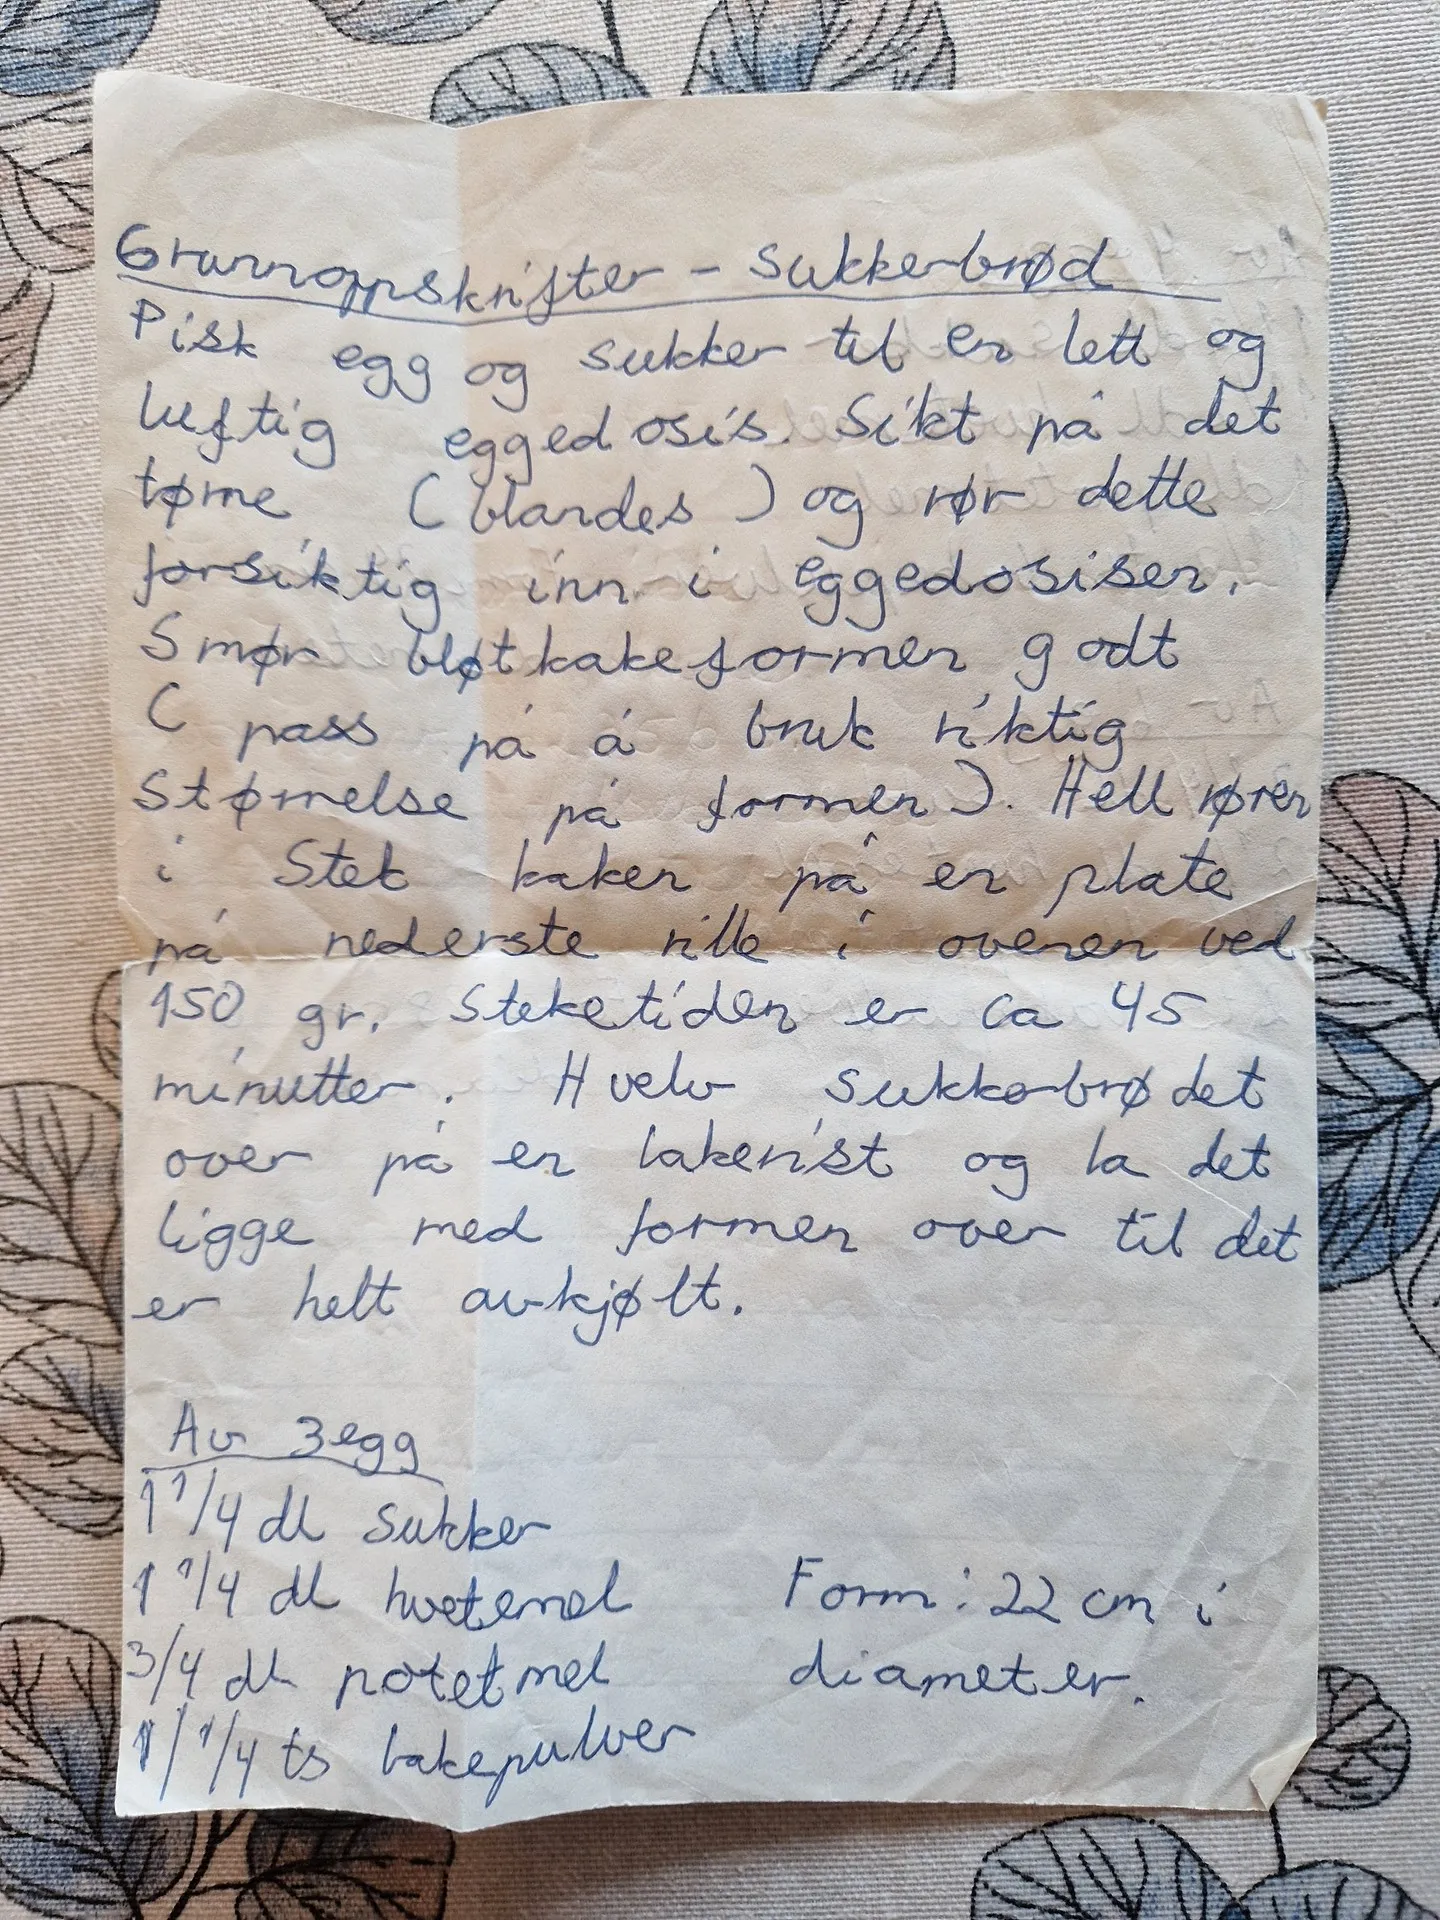 Grunnoppskrifter - sukkerbrød
Pisk egg og sukker til en lett og
luftig eggedosis. Sikt på det
tørrne (blandes) og rør dette
forsiktig inn i eggedosisen.
Smør bløtkakeformen godt
( pass på å bruk riktig
størrnelse på formen). Hell røren
i Stek kaken på en plate
på nederste rille i ovenen ved
150 gr. Steketiden er ca 45
minutter. Hvelv sukkerbrødet
over på en kakerist og la det
ligge med formen over til det
er helt avkjølt.
Av 3 egg
1 1/4 dl sukker
1 1/4 dl hvetemel
3/4 dl potetmel
1/1/4 ts bakepulver
Form: 22 cm i
diameter.